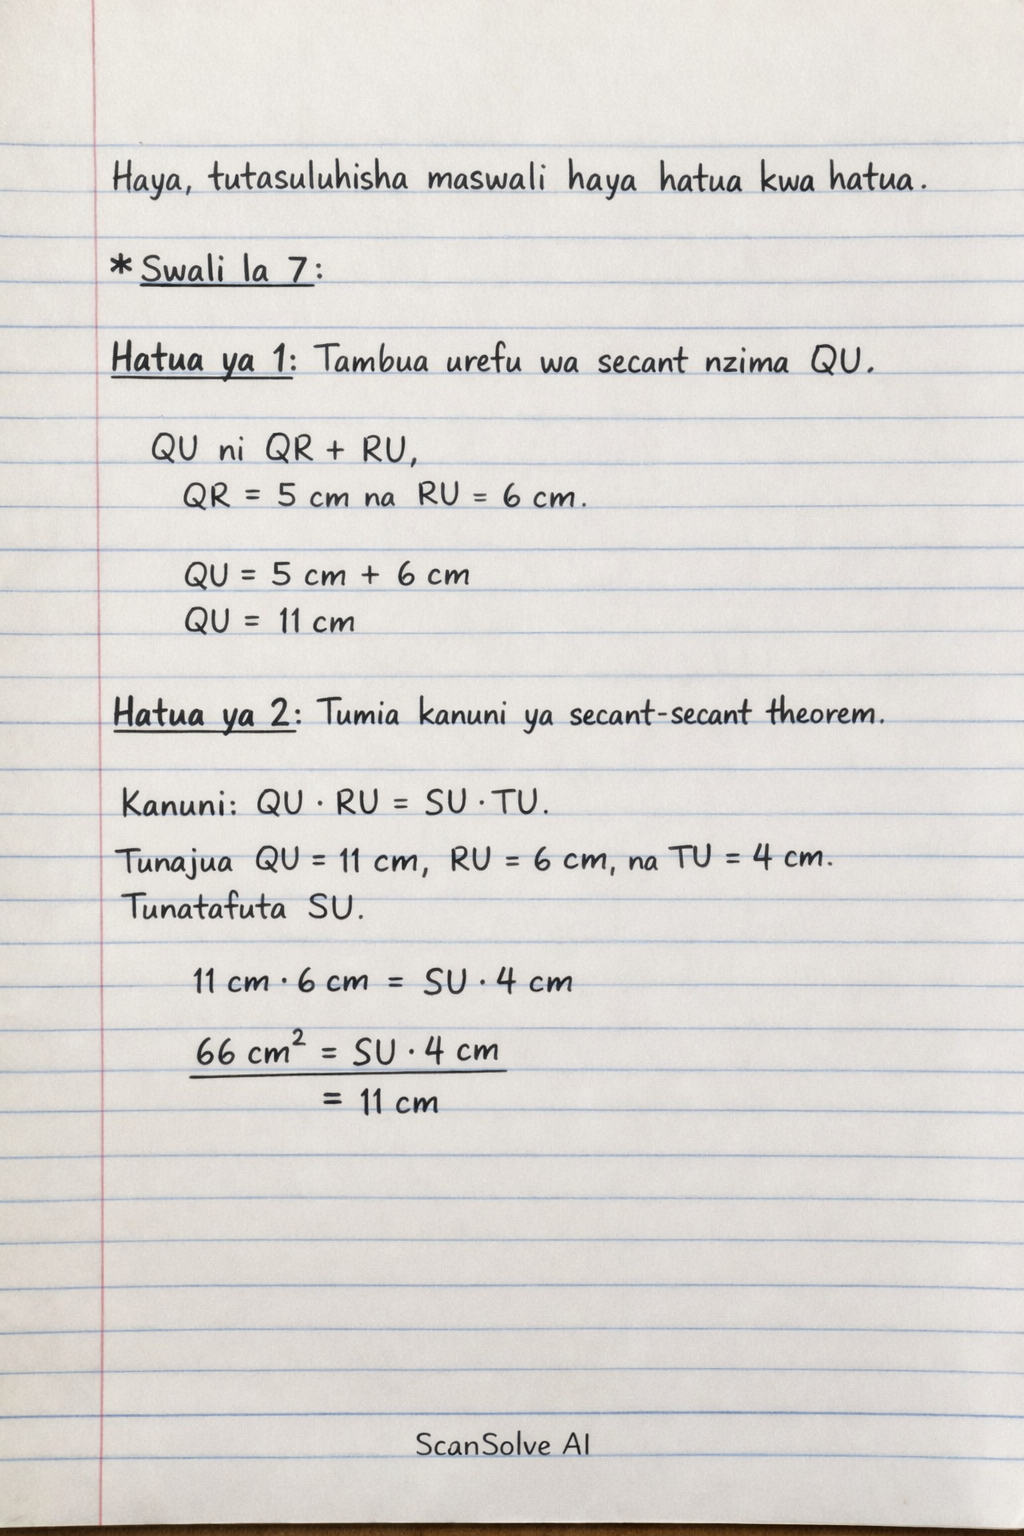 Haya, tutasuluhisha maswali haya hatua kwa hatua.
* Swali la 7:
Hatua ya 1: Tambua urefu wa secant nzima QU.
QU ni QR + RU,
QR = 5 cm na RU = 6 cm.
QU = 5 cm + 6 cm
QU = 11 cm
Hatua ya 2: Tumia kanuni ya secant-secant theorem.
Kanuni: QU · RU = SU · TU.
Tunajua QU = 11 cm, RU = 6 cm, na TU = 4 cm.
Tunatafuta SU.
11 cm · 6 cm = SU · 4 cm
66 cm² = SU · 4 cm
= 11 cm
ScanSolve AI